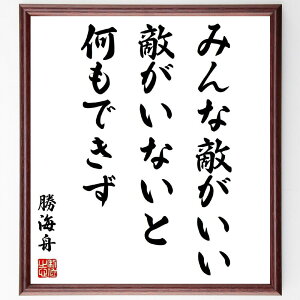 みんな敵がいい
敵がいないと
何もできず
勝海舟